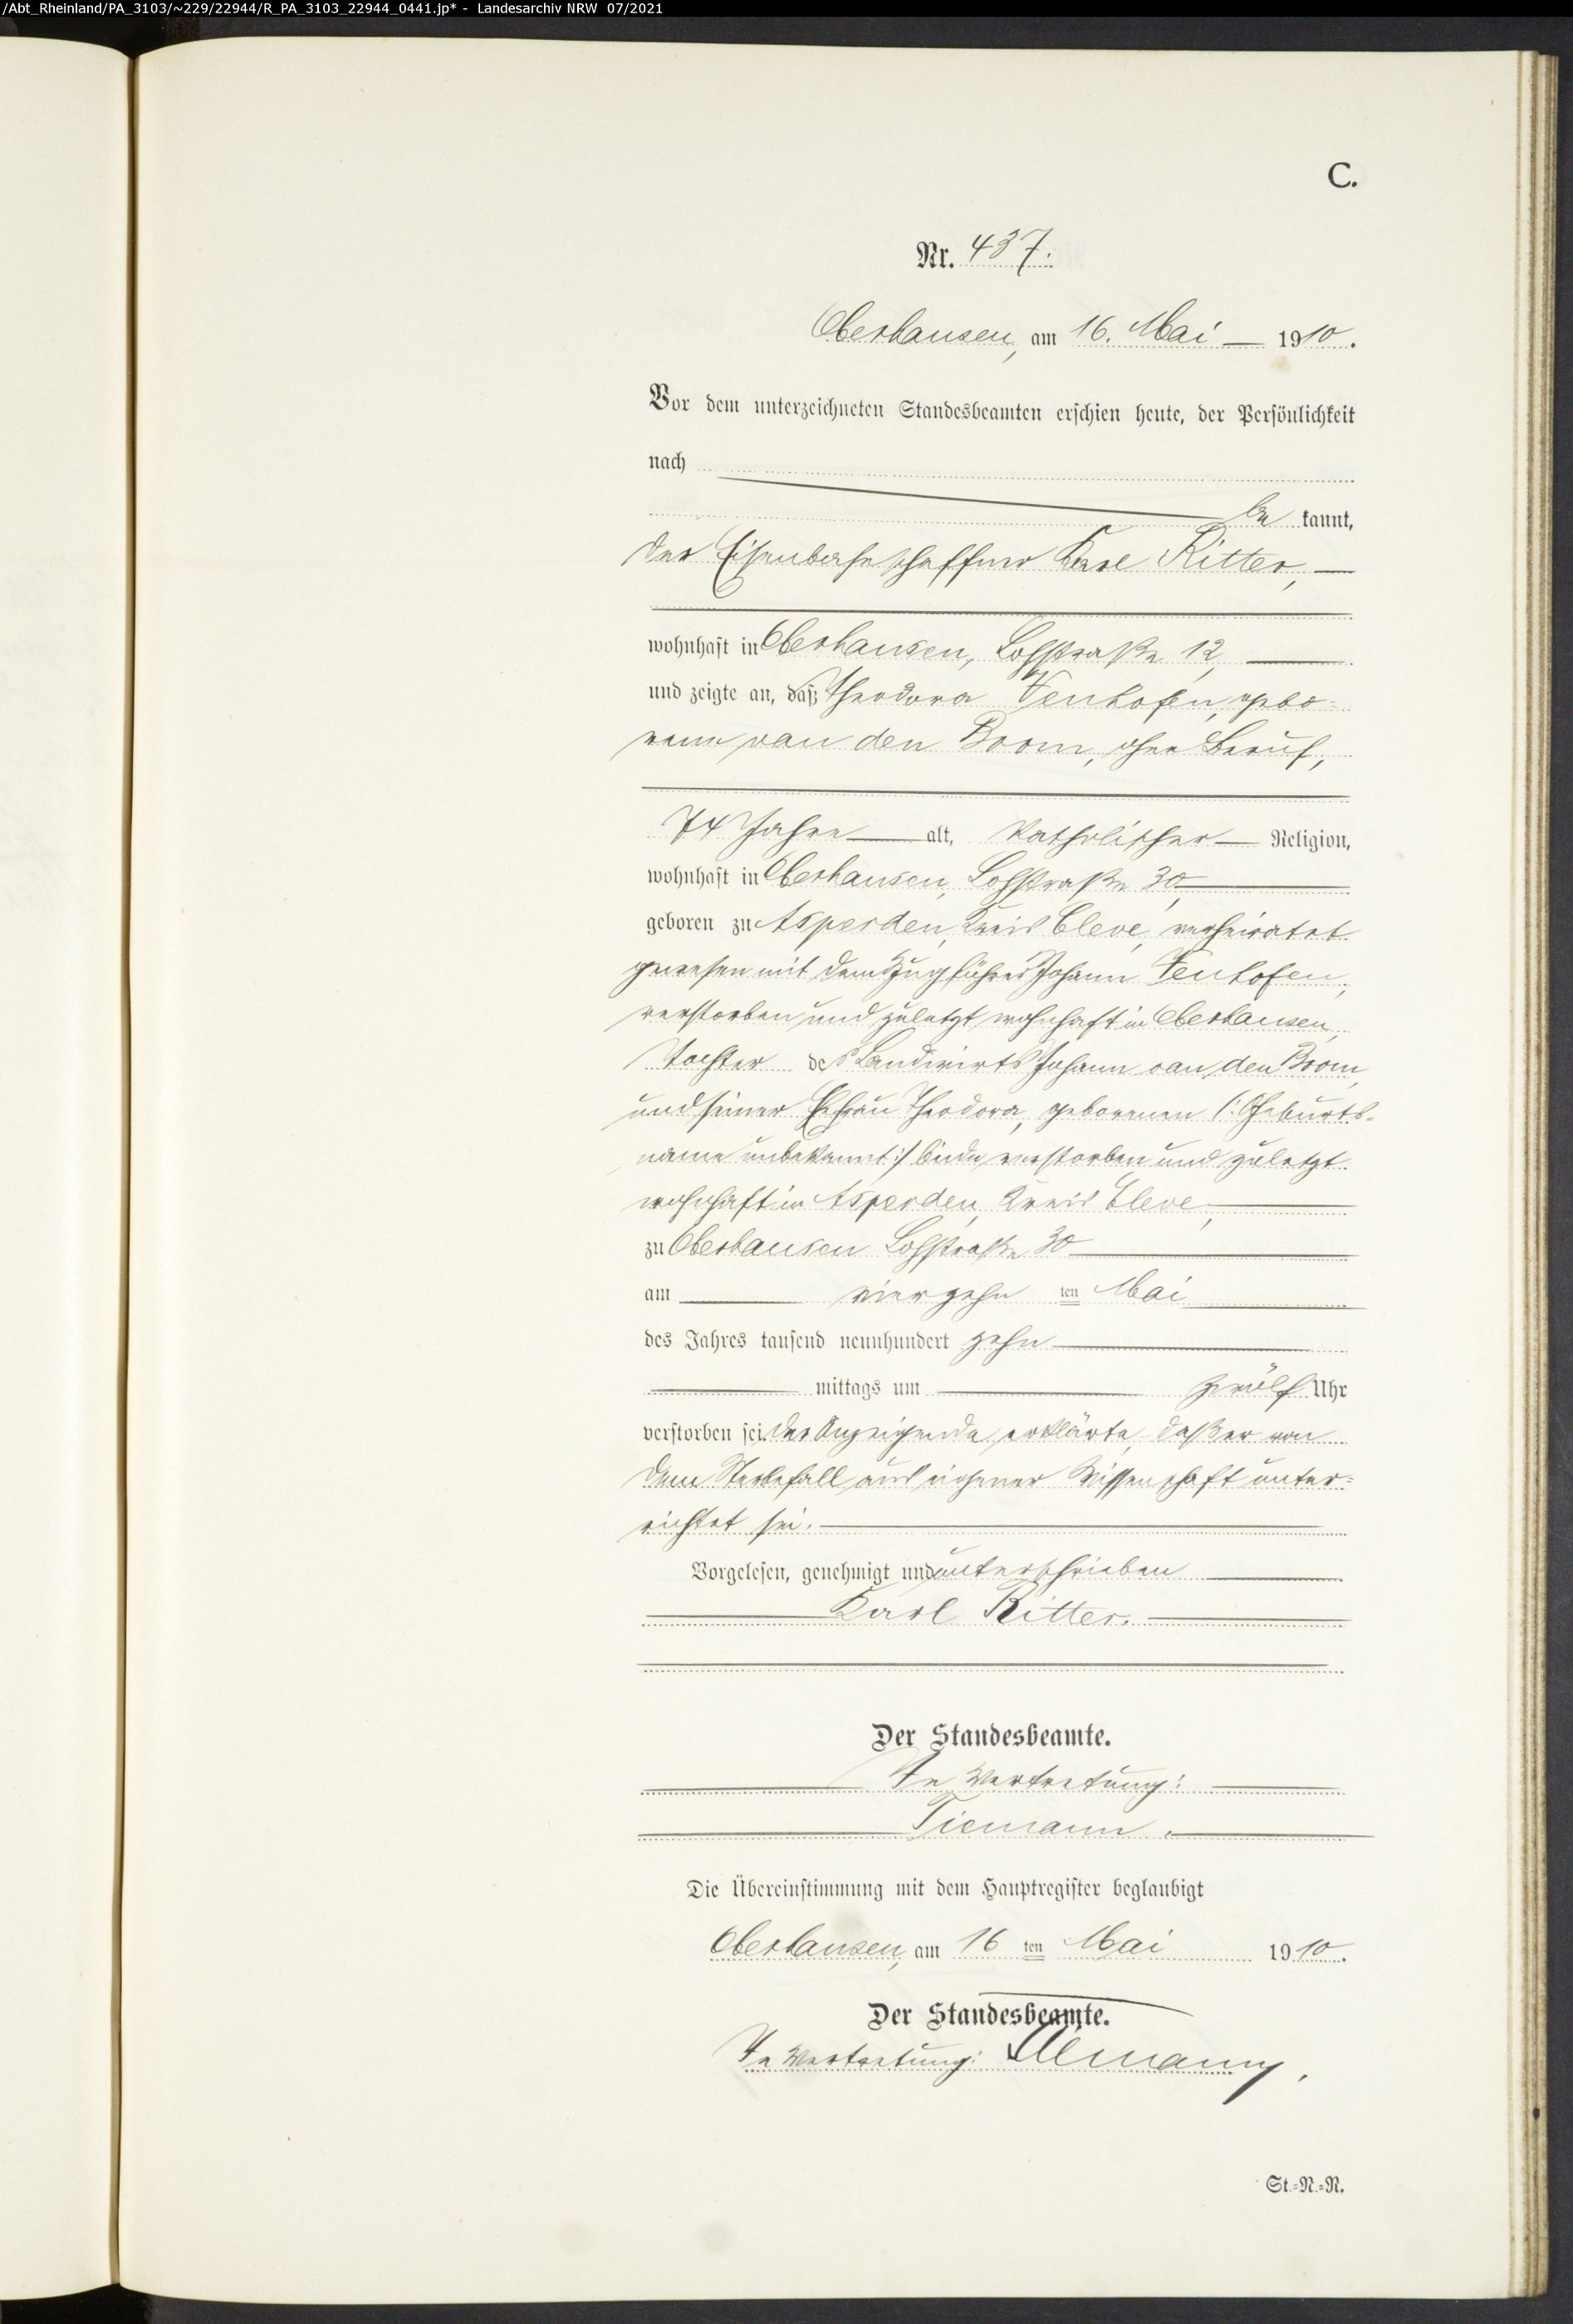 /Abt_Rheinland/PA_3103/~229/22944/R_PA_3103_22944_0441.jp* - Landesarchiv NRW 07/2021
C.
Nr. 437.
Oberhausen, am 16. Mai 1910.
Vor dem unterzeichneten Standesbeamten erschien heute, der Persönlichkeit
nach
be kannt,
der Eisenbahnschaffner Karl Ritter,
wohnhaft in Oberhausen, Lohstraße 12,
und zeigte an, daß Theodora Venhofen, gebo-
rene van den Boom, ohne Beruf,
74 Jahre alt, katholischer Religion,
wohnhaft in Oberhausen, Lohstraße 30,
geboren zu Asperden, Kreis Cleve, verheiratet
gewesen mit dem Zugführer Johann Venhofen,
verstorben und zuletzt wohnhaft in Oberhausen,
Tochter des Landwirts Johann van den Boom,
und seiner Ehefrau Theodora, geborenen (: Geburts-
name unbekannt :) beide verstorben und zuletzt
wohnhaft in Asperden, Kreis Cleve,
zu Oberhausen Lohstraße 30
am vierzehn ten Mai
des Jahres tausend neunhundert zehn
mittags um zwölf Uhr
verstorben sei. Der Anzeigende erklärte, daß er von
dem Sterbefall aus eigener Wissenschaft unter-
richtet sei.
Vorgelesen, genehmigt und unterschrieben
Karl Ritter.
Der Standesbeamte.
In Vertretung:
Tiemann.
Die Übereinstimmung mit dem Hauptregister beglaubigt
Oberhausen, am 16 ten Mai 1910.
Der Standesbeamte.
In Vertretung:
St.-N.-N.